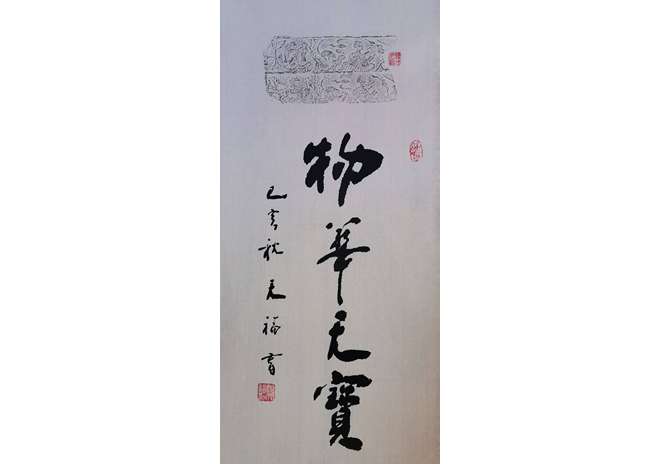 物華天寶
己亥秋天福書